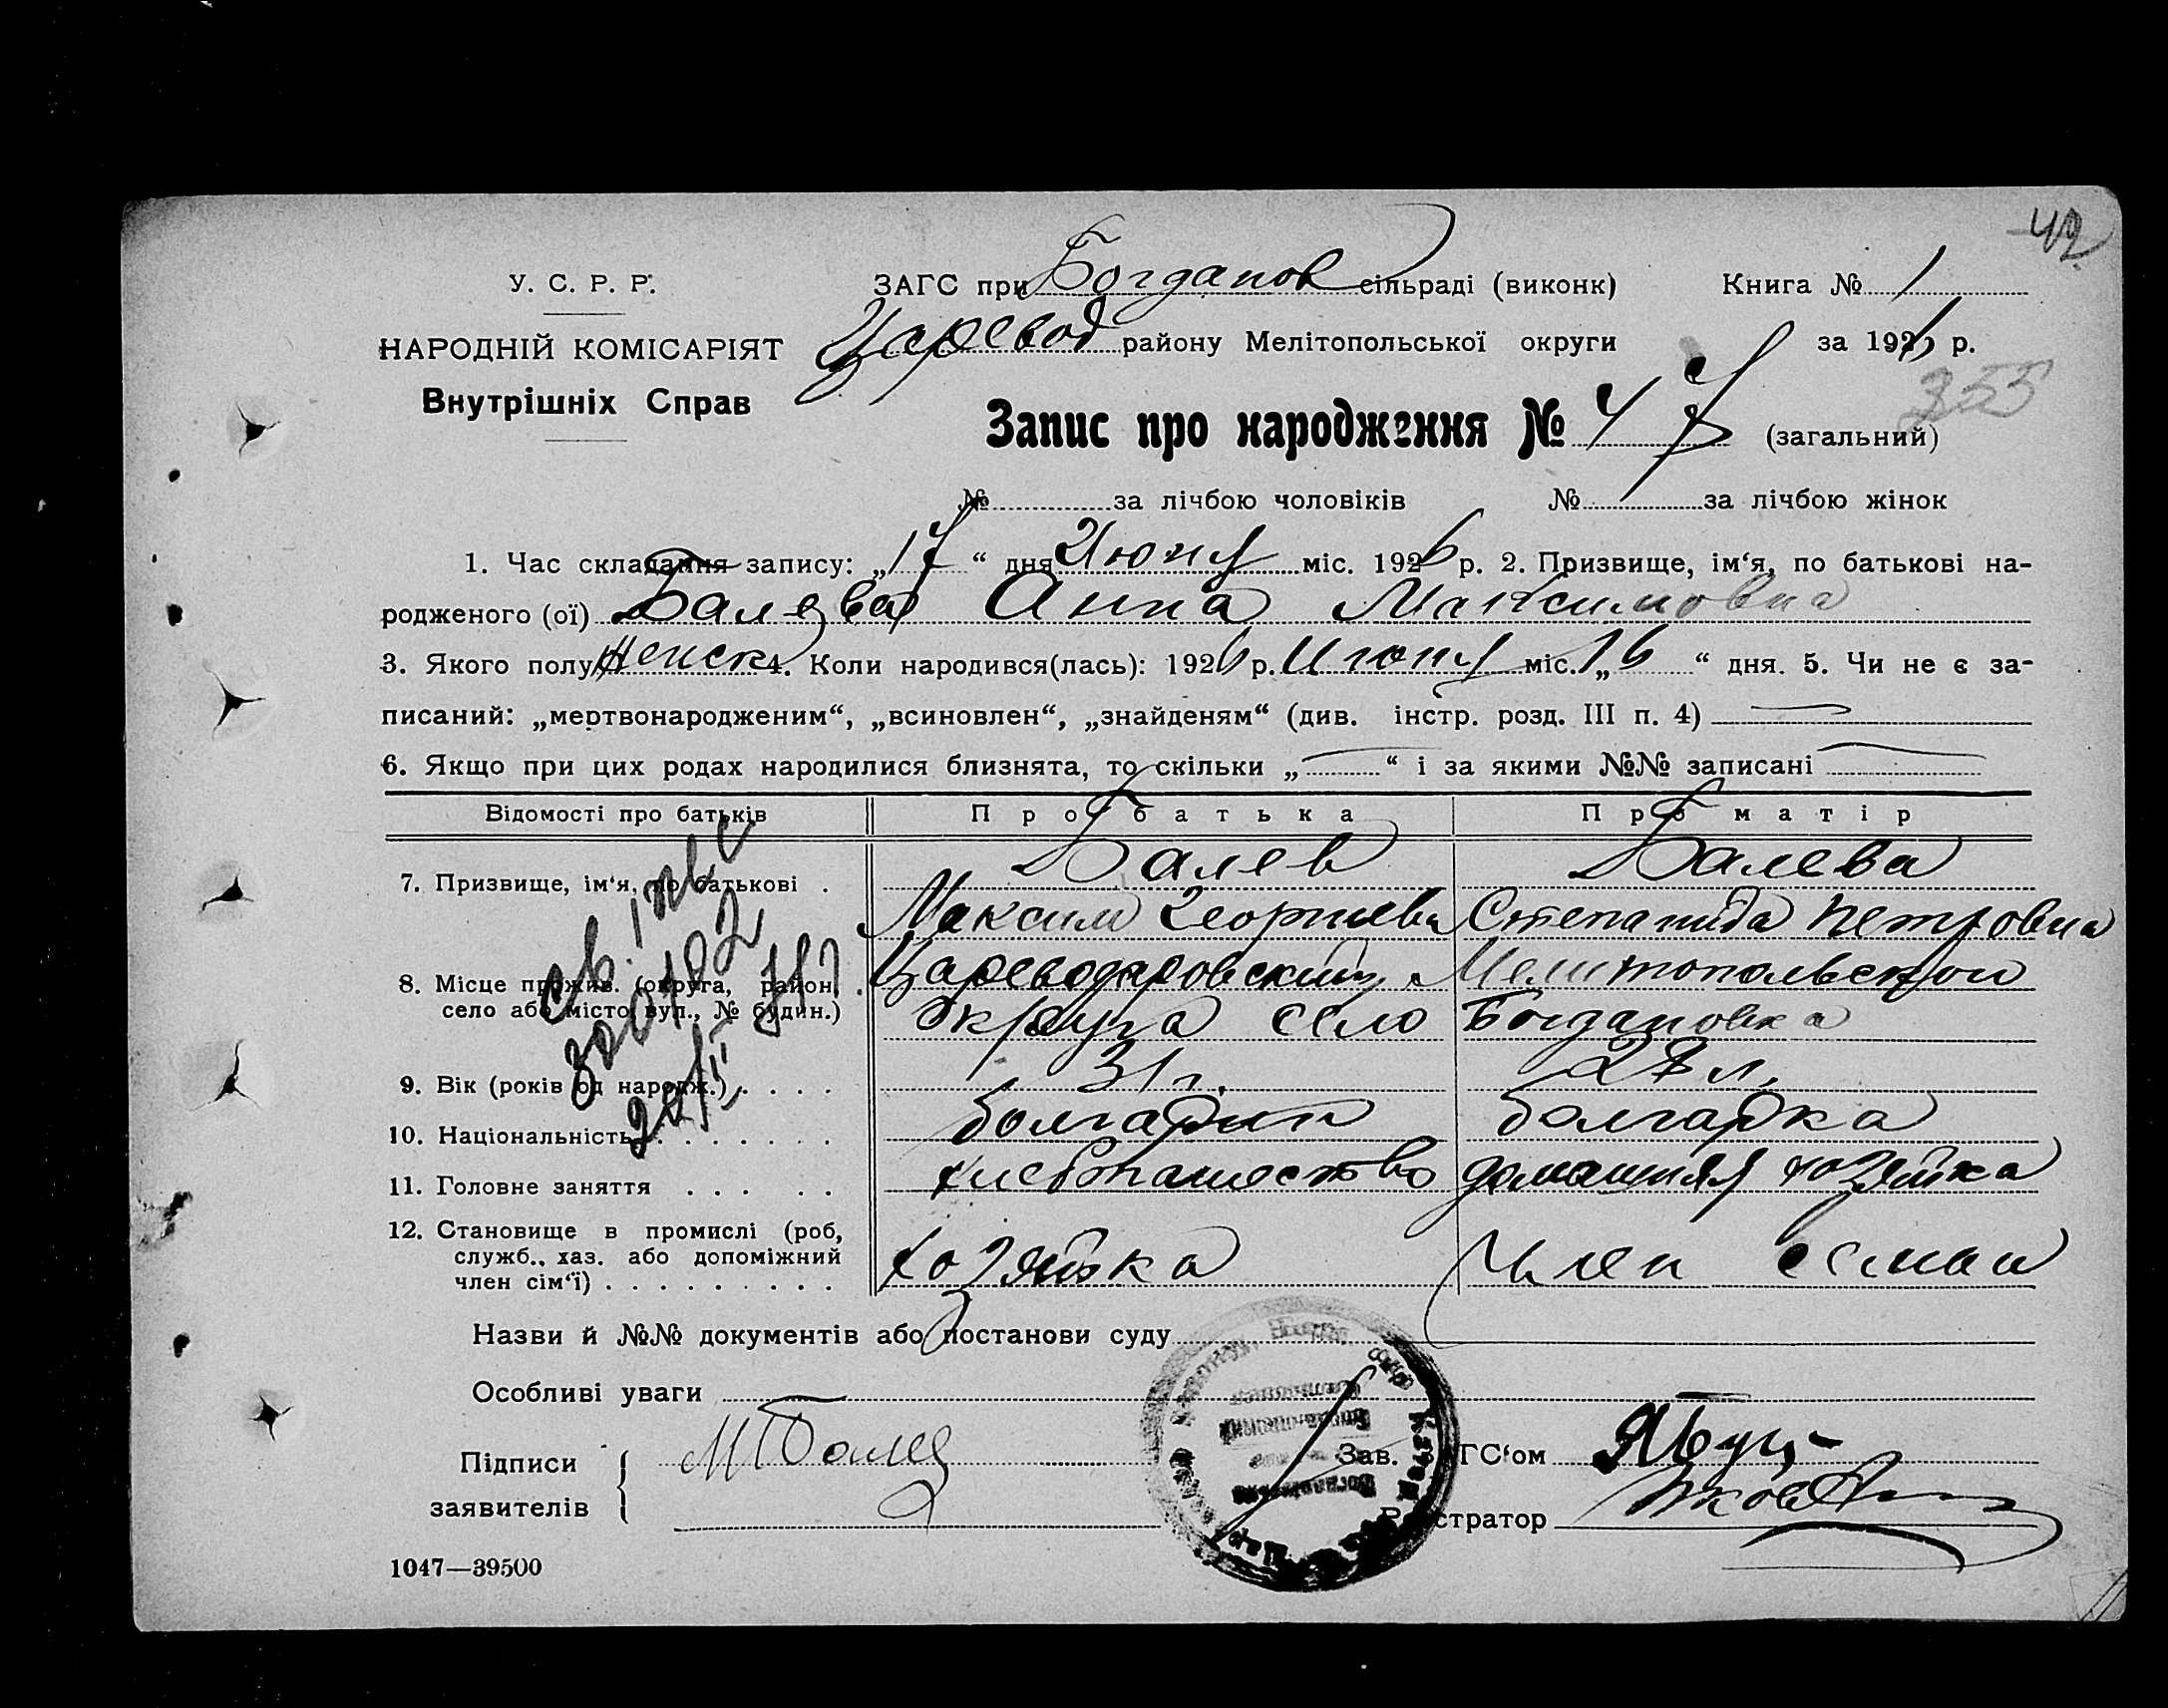 42
У. С. Р. Р.
ЗАГС при Богданов сільраді (виконк)
Книга № 1
НАРОДНІЙ КОМІСАРІЯТ
Царевод району Мелітопольської округи
за 1926 р.
355
Внутрішніх Справ
Запис про народження № 47 (загальний)
№ за лічбою чоловіків № за лічбою жінок
1. Час складання запису: „17“ дня Июня міс. 1926 р. 2. Призвище, ім‘я, по батькові на-
родженого (ої) Балева Анна Максимовна
3. Якого полу женск 4. Коли народився(лась): 1926 р. Июня міс. „16“ дня. 5. Чи не є за-
писаний: „мертвонародженим“, „всиновлен“, „знайденям“ (див. інстр. розд. III п. 4) —
6. Якщо при цих родах народилися близнята, то скільки „—“ і за якими №№ записані —
Відомості про батьків Про батька Про матір
7. Призвище, ім‘я, по батькові . Балев Балева
Максим Георгиев Степанида Петровна
8. Місце прожив. (округа, район, Цареводаровский Мелитопольской
село або місто, вул., № будин.) Округа село Богдановка
9. Вік (років од народж.) . . . . 31 г. 28 л.
10. Національність . . . . . . . . болгарин болгарка
11. Головне заняття . . . . . хлебпашество домашняя хозяйка
12. Становище в промислі (роб,
служб., хаз. або допоміжний
член сім‘ї) . . . . . . . . . хозяйка Член семьи
Назви й №№ документів або постанови суду
Особливі уваги —
Підписи
заявителів
М Балев
Зав. ЗАГС‘ом
Реєстратор
1047—39500